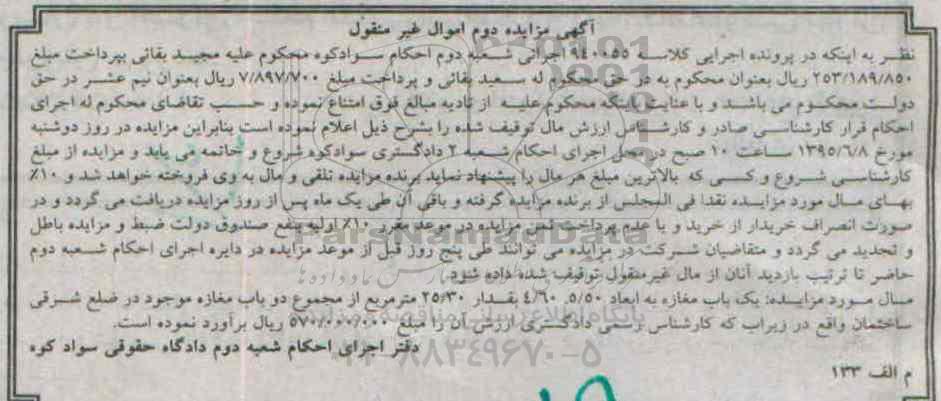 آگهی مزایده دوم اموال غیر منقول
نظر به اینکه در پرونده اجرایی کلاسه ۱۹۴۰۰۵۵ اجرائی شعبه دوم احکام سوادکوه محکوم علیه مجید بقائی بپرداخت مبلغ
۲۵۳/۱۸۹/۸۵۰ ریال بعنوان محکوم به در حق محکوم له سعید بقائی و پرداخت مبلغ ۷/۸۹۷/۷۰۰ ریال بعنوان نیم عشر در حق
دولت محکوم می باشد و با عنایت باینکه محکوم علیه از تادیه مبالغ فوق امتناع نموده و حسب تقاضای محکوم له اجرای
احکام قرار کارشناسی صادر و کارشناس ارزش مال توقیف شده را بشرح ذیل اعلام نموده است بنابراین مزایده در روز دوشنبه
مورخ ۱۳۹۵/۶/۸ ساعت ۱۰ صبح در محل اجرای احکام شعبه ۲ دادگستری سوادکوه شروع و خاتمه می یابد و مزایده از مبلغ
کارشناسی شروع و کسی که بالاترین مبلغ هر مال را پیشنهاد نماید برنده مزایده تلقی و مال به وی فروخته خواهد شد و ۱۰٪
بهای مال مورد مزایده نقدا فی المجلس از برنده مزایده گرفته و باقی آن طی یک ماه پس از روز مزایده دریافت می گردد و در
صورت انصراف خریدار از خرید و یا عدم پرداخت ثمن مزایده در موعد مقرر ۱۰٪ اولیه بنفع صندوق دولت ضبط و مزایده باطل
و تجدید می گردد و متقاضیان شرکت در مزایده می توانند طی پنج روز قبل از موعد مزایده در دایره اجرای احکام شعبه دوم
حاضر تا ترتیب بازدید آنان از مال غیرمنقول توقیف شده داده شود.
مال مورد مزایده: یک باب مغازه به ابعاد ۵/۵۰، ۴/۶۰ بقدار ۲۵/۳۰ مترمربع از مجموع دو باب مغازه موجود در ضلع شرقی
ساختمان واقع در زیراب که کارشناس رسمی دادگستری ارزش آن را مبلغ ۵۷۰/۰۰۰/۰۰۰ ریال برآورد نموده است.
دفتر اجرای احکام شعبه دوم دادگاه حقوقی سواد کوه
م الف ۱۳۳
ParsNamadData
پایگاه اطلاع رسانی مناقصه
۸۸۳۴۹۶۷۰-۵